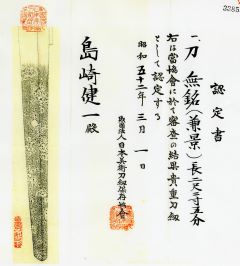 3285
認定書
一、刀 無銘(兼景)長二尺三寸五分
右は當協會に於て審査の結果貴重刀剣
として認定する
昭和五十二年三月一日
財団法人日本美術刀剣保存協會
島崎健一殿